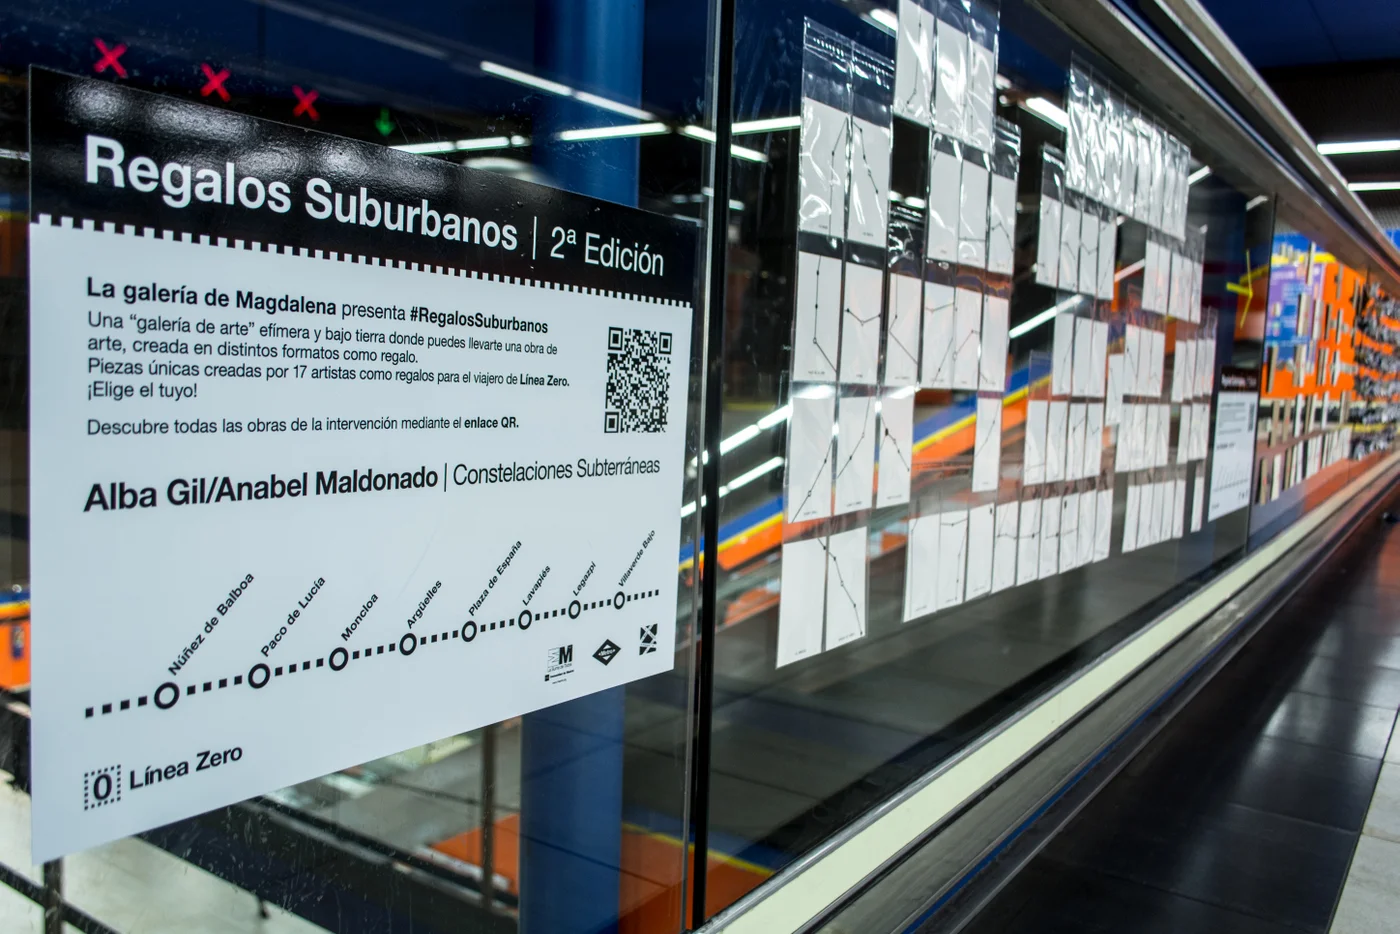 Regalos Suburbanos | 2ª Edición
La galería de Magdalena presenta #RegalosSuburbanos
Una “galería de arte” efímera y bajo tierra donde puedes llevarte una obra de
arte, creada en distintos formatos como regalo.
Piezas únicas creadas por 17 artistas como regalos para el viajero de Línea Zero.
¡Elige el tuyo!
Descubre todas las obras de la intervención mediante el enlace QR.
Alba Gil/Anabel Maldonado | Constelaciones Subterráneas
Núñez de Balboa
Paco de Lucía
Moncloa
Argüelles
Plaza de España
Lavapiés
Legazpi
Villaverde Bajo
0 Línea Zero